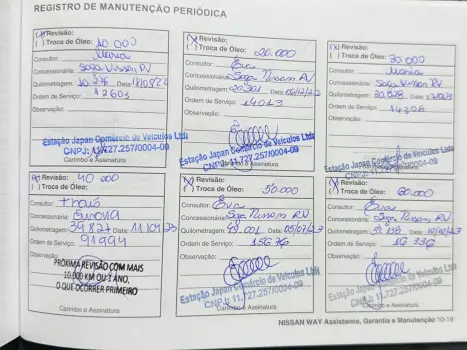 REGISTRO DE MANUTENÇÃO PERIÓDICA
(X) Revisão:
( ) Troca de Óleo: 10.000
Consultor: Maria
Concessionária: Saga Nissan RV
Quilometragem: 10.236 Data:
Ordem de Serviço: 12603
Observação:
Estação Japan Comércio de Veículos Ltda
CNPJ: 11.727.257/0004-09
Carimbo e Assinatura
(X) Revisão:
( ) Troca de Óleo: 20.000
Consultor: Eva
Concessionária: Saga Nissan RV
Quilometragem: 20.301 Data:
Ordem de Serviço: 14013
Observação:
Estação Japan Comércio de Veículos Ltda
CNPJ: 11.727.257/0004-09
Carimbo e Assinatura
(X) Revisão:
( ) Troca de Óleo: 30.000
Consultor: Maria
Concessionária: Saga Nissan RV
Quilometragem: Data:
Ordem de Serviço:
Observação:
Estação Japan Comércio de Veículos Ltda
CNPJ: 11.727.257/0004-09
Carimbo e Assinatura
(X) Revisão: 40 000
( ) Troca de Óleo:
Consultor:
Concessionária:
Quilometragem: 39827 Data:
Ordem de Serviço: 91994
Observação:
PRÓXIMA REVISÃO COM MAIS
10.000 KM OU 1 ANO,
O QUE OCORRER PRIMEIRO
Carimbo e Assinatura
(X) Revisão:
( ) Troca de Óleo: 50.000
Consultor: Eva
Concessionária: Saga Nissan RV
Quilometragem: 49.001 Data: 05/07/23
Ordem de Serviço: 15676
Observação:
Estação Japan Comércio de Veículos Ltda
CNPJ: 11.727.257/0004-09
Carimbo e Assinatura
(X) Revisão:
( ) Troca de Óleo: 60.000
Consultor: Eva
Concessionária: Saga Nissan RV
Quilometragem: Data:
Ordem de Serviço: 16336
Observação:
Estação Japan Comércio de Veículos Ltda
CNPJ: 11.727.257/0004-09
Carimbo e Assinatura
NISSAN WAY Assistance, Garantia e Manutenção 10-19